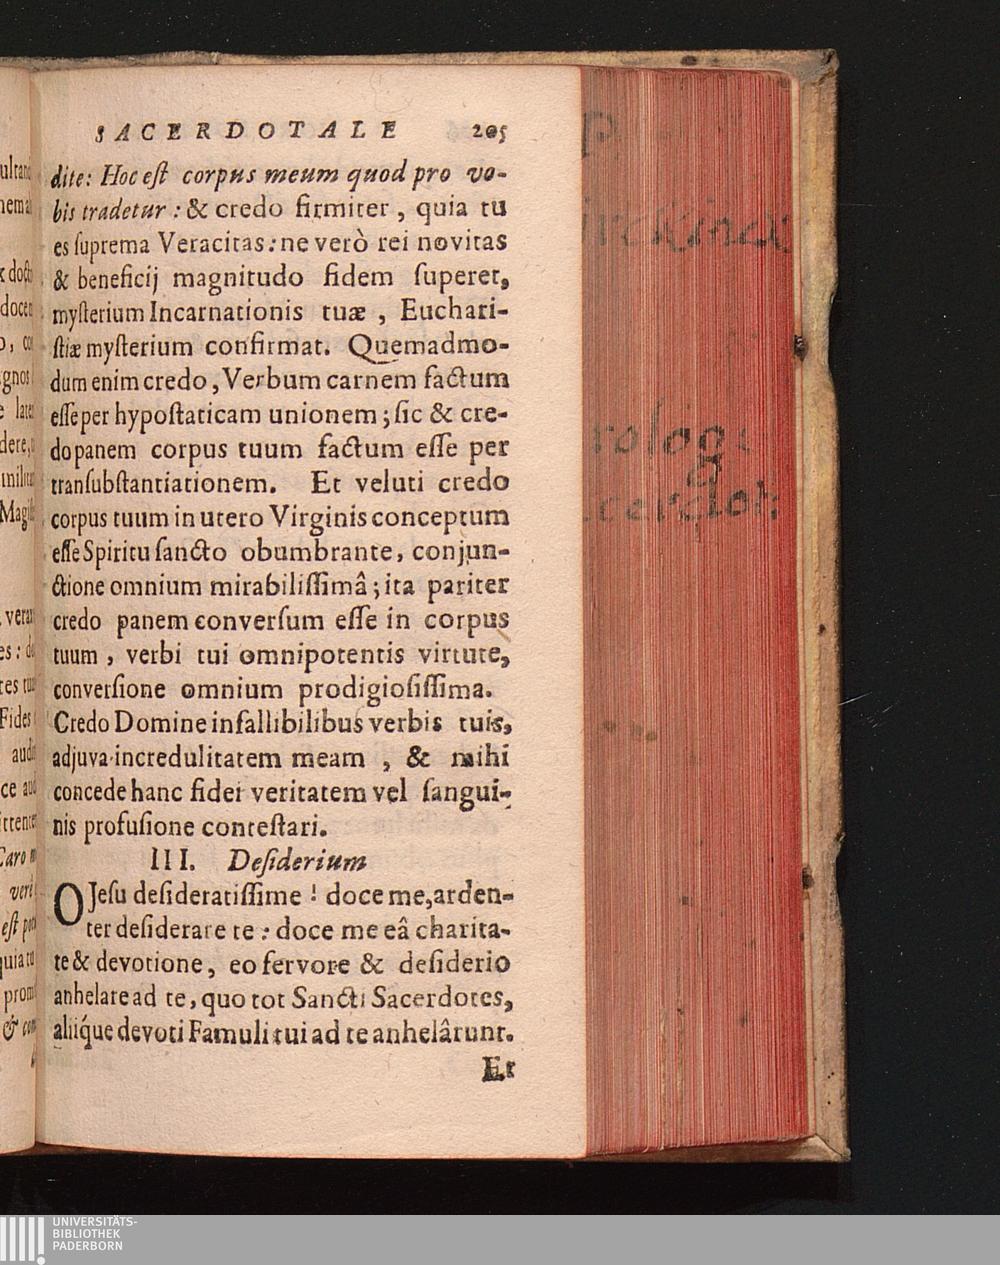 SACERDOTALE 205
dite: Hoc eſt corpus meum quod pro vo-
bis tradetur : & credo firmiter , quia tu
es ſuprema Veracitas: ne verò rei novitas
& beneficij magnitudo fidem ſuperet,
myſterium Incarnationis tuæ , Euchari-
ſtiæ myſterium confirmat. Quemadmo-
dum enim credo , Verbum carnem factum
eſſe per hypoſtaticam unionem ; ſic & cre-
do panem corpus tuum factum eſſe per
tranſubſtantiationem. Et veluti credo
corpus tuum in utero Virginis conceptum
eſſe Spiritu ſancto obumbrante, conjun-
ctione omnium mirabiliſſimâ ; ita pariter
credo panem converſum eſſe in corpus
tuum , verbi tui omnipotentis virtute,
converſione omnium prodigioſiſſima.
Credo Domine infallibilibus verbis tuis,
adjuva incredulitatem meam , & mihi
concede hanc fidei veritatem vel ſangui-
nis profuſione conteſtari.
III. Deſiderium
O Jeſu deſideratiſſime ! doce me, arden-
ter deſiderare te : doce me eâ charita-
te & devotione, eo fervore & deſiderio
anhelare ad te, quo tot Sancti Sacerdotes,
aliíque devoti Famuli tui ad te anhelârunt.
Et
UNIVERSITÄTS-
BIBLIOTHEK
PADERBORN